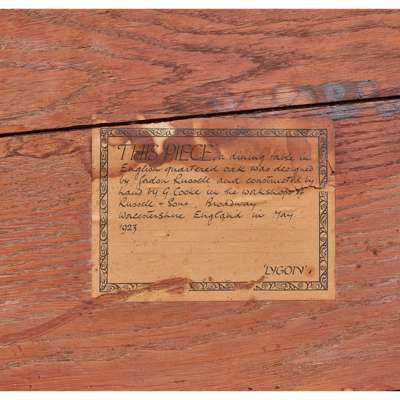 THIS PIECE, a dining table in
English quartered oak was designed
by Gordon Russell and constructed by
hand by G Cooke in the workshops of
Russell & Sons, Broadway
Worcestershire England in May
1923
'LYGON'